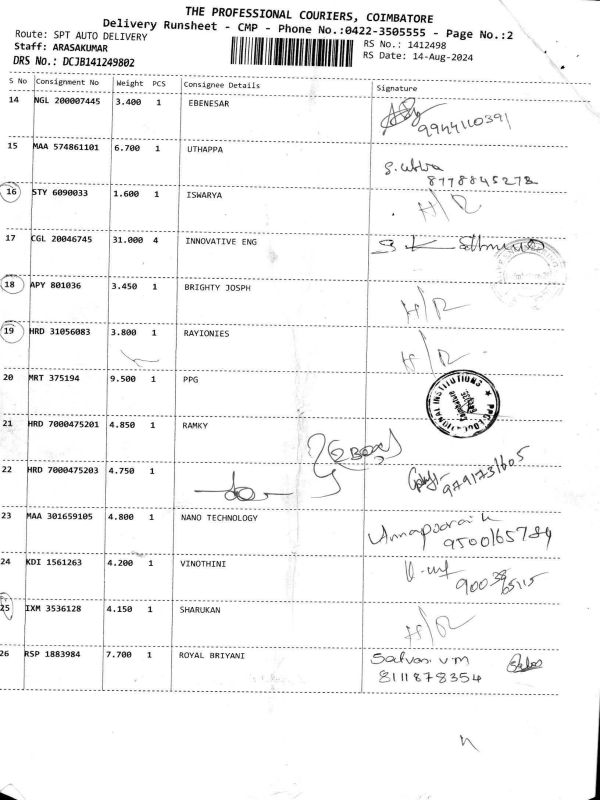 THE PROFESSIONAL COURIERS, COIMBATORE
Delivery Runsheet - CMP - Phone No.:0422-3505555 - Page No.:2
Route: SPT AUTO DELIVERY
RS No.: 1412498
Staff: ARASAKUMAR
RS Date: 14-Aug-2024
DRS No.: DCJB141249802
S No Consignment No Weight PCS Consignee Details Signature
14 NGL 200007445 3.400 1 EBENESAR
9944110391
15 MAA 574861101 6.700 1 UTHAPPA
8778845278
16 STY 6090033 1.600 1 ISWARYA H/R
17 CGL 20046745 31.000 4 INNOVATIVE ENG
18 APY 801036 3.450 1 BRIGHTY JOSPH H/R
19 HRD 31056083 3.800 1 RAYIONIES H/R
20 MRT 375194 9.500 1 PPG
21 HRD 7000475201 4.850 1 RAMKY
22 HRD 7000475203 4.750 1 9791731605
23 MAA 301659105 4.800 1 NANO TECHNOLOGY
9500165784
24 KDI 1561263 4.200 1 VINOTHINI
25 IXM 3536128 4.150 1 SHARUKAN H/R
26 RSP 1883984 7.700 1 ROYAL BRIYANI
8111878354